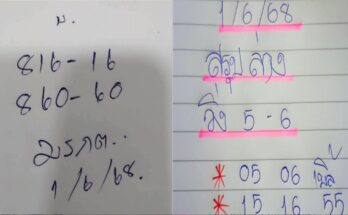 ม.
816-16
860-60
มรภต..
1/6/68.
1/6/68
สรุปล่าง
วิ่ง 5-6
* 05 06 เบิ้ล
* 15 16 55